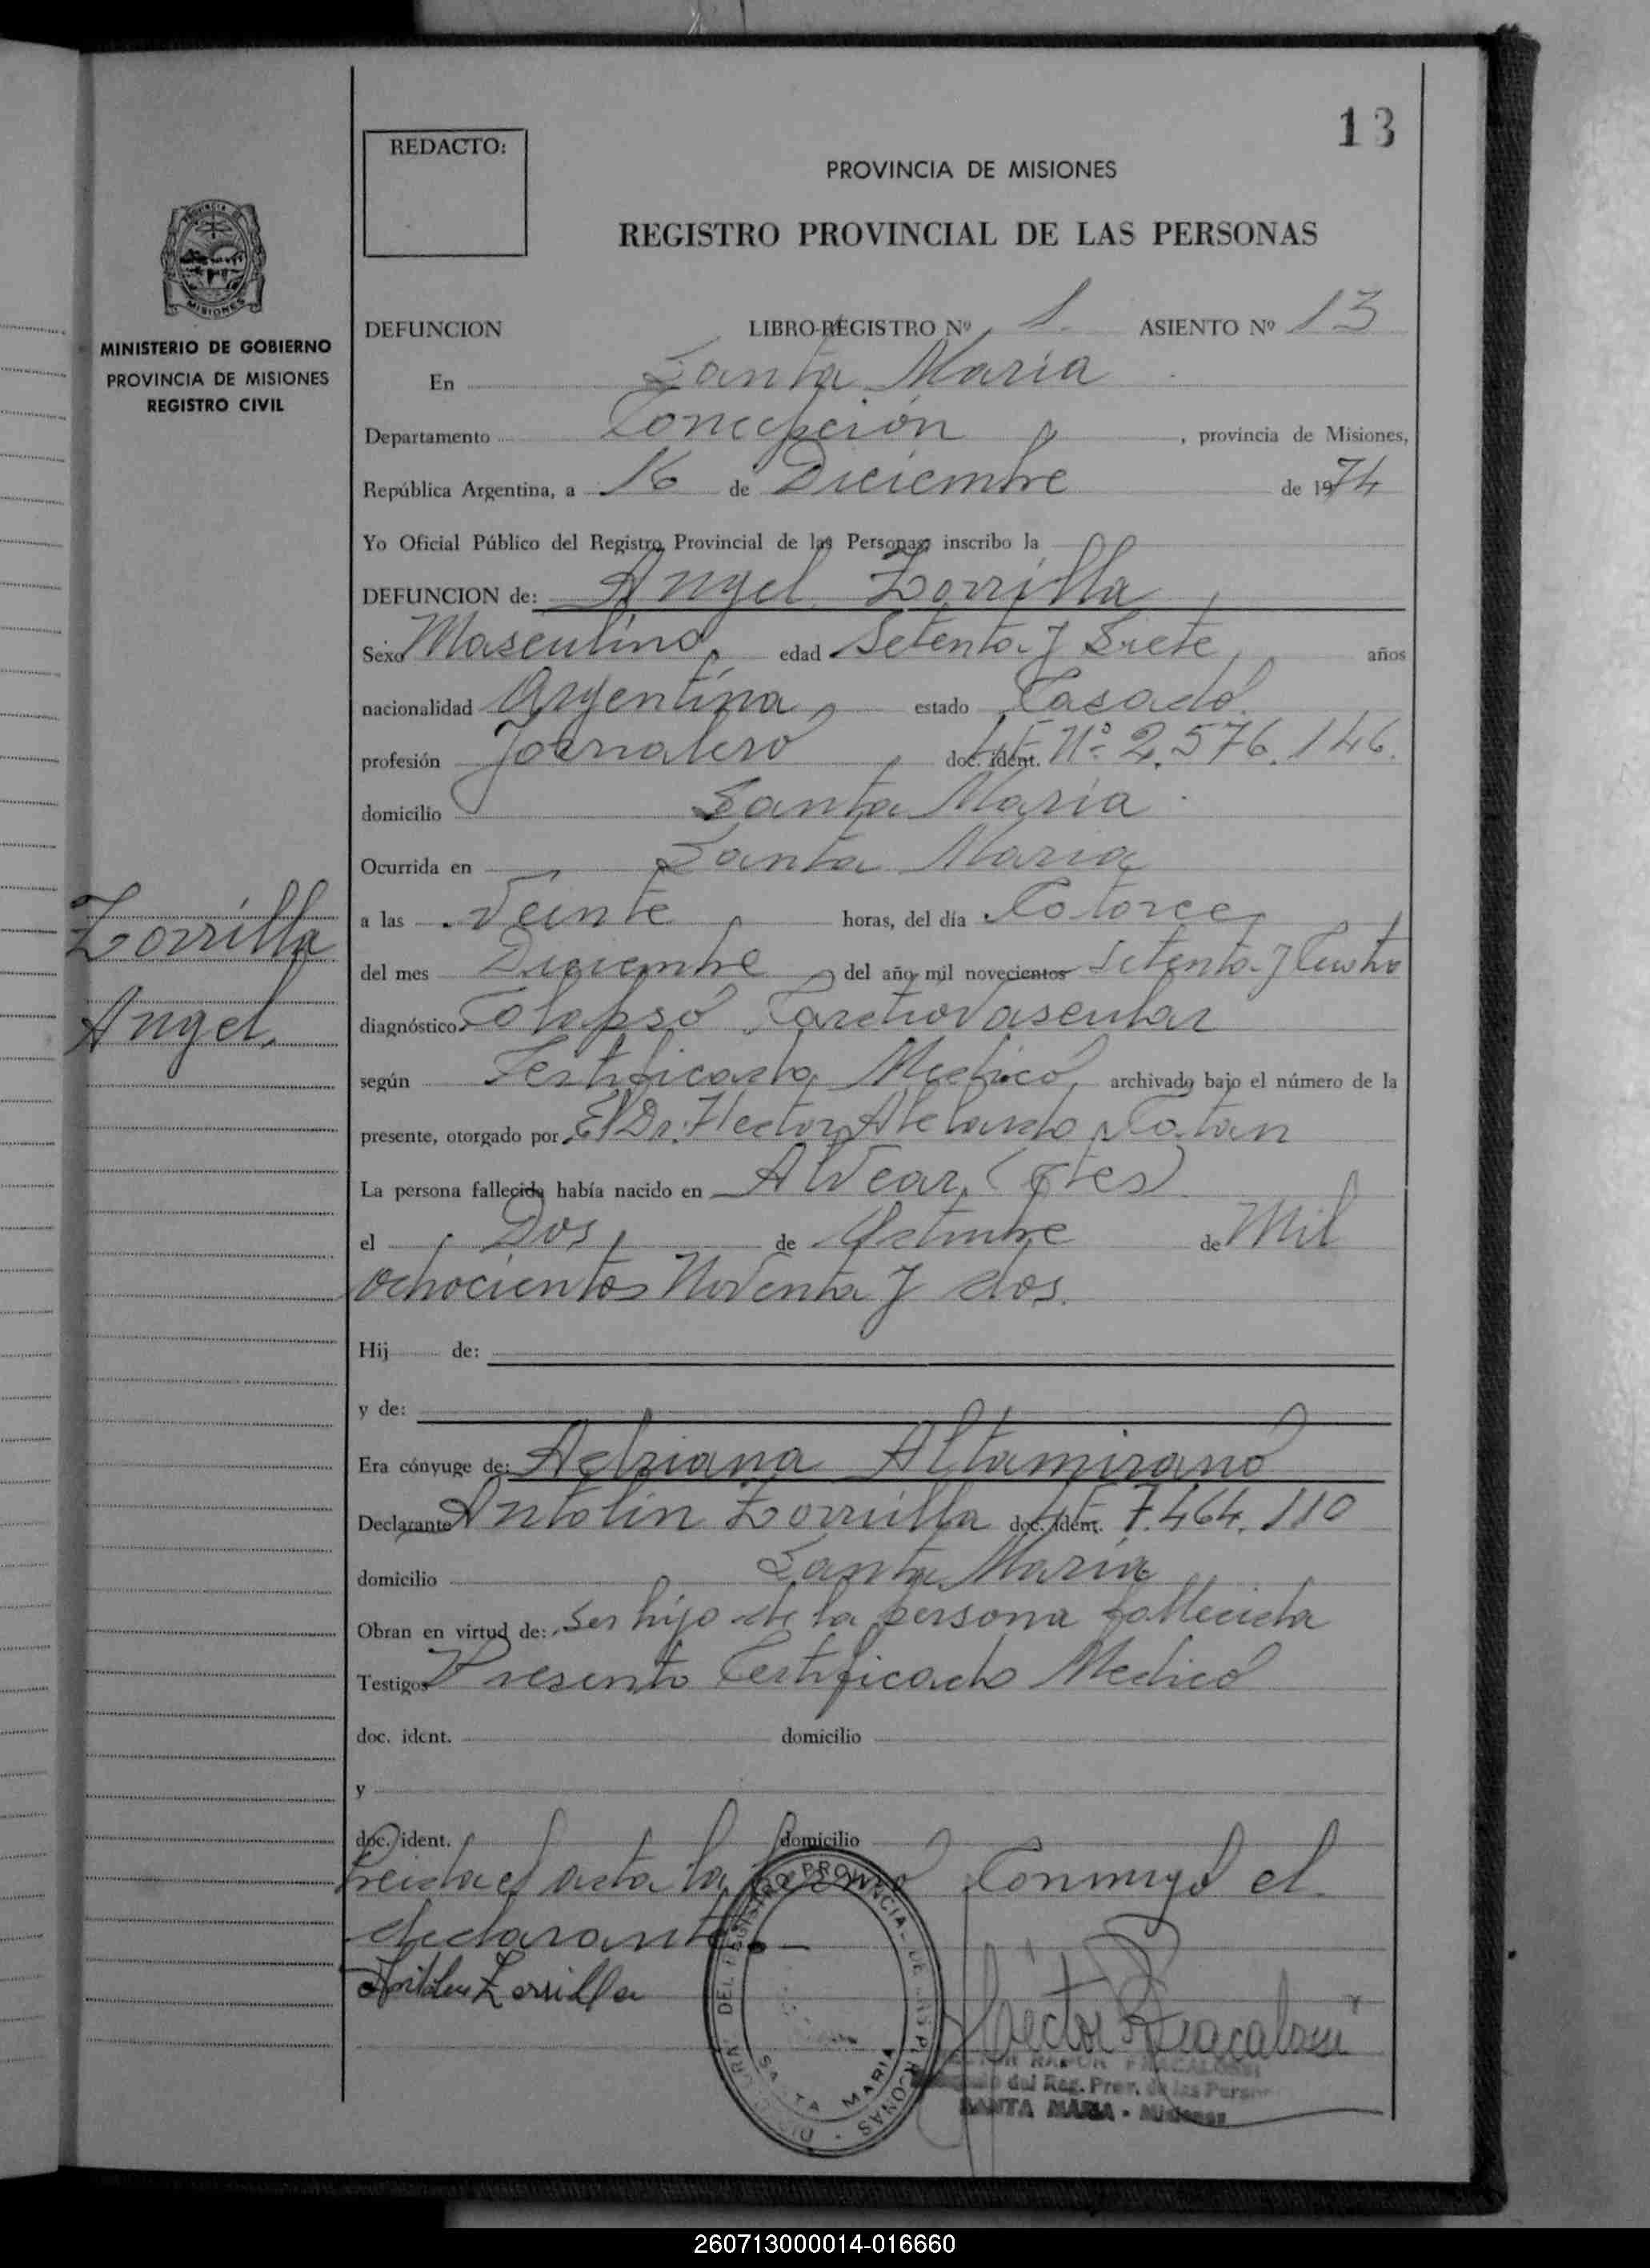 13
REDACTO:
PROVINCIA DE MISIONES
REGISTRO PROVINCIAL DE LAS PERSONAS
PROVINCIA DE
MISIONES
MINISTERIO DE GOBIERNO
PROVINCIA DE MISIONES
REGISTRO CIVIL
DEFUNCION LIBRO-REGISTRO Nº 1. ASIENTO Nº 13
En Santa María
Departamento Concepción, provincia de Misiones,
República Argentina, a 16 de Diciembre de 1974
Yo Oficial Público del Registro Provincial de las Personas, inscribo la
DEFUNCION de: Angel Zorrilla,
Sexo Masculino, edad Setenta y Siete, años
nacionalidad Argentina, estado Casado.
profesión Jornalero, doc. ident. Nº 2.576.146.
domicilio Santa María
Ocurrida en Santa María
a las Veinte horas, del día Catorce,
del mes Diciembre, del año mil novecientos Setenta y Cuatro
diagnóstico Colapso Cardiovascular
según Certificado Medico, archivado bajo el número de la
presente, otorgado por El Dr. Hector
La persona fallecida había nacido en Alvear, (Ctes)
el Dos, de Octubre de Mil
ochocientos Noventa y dos.
Zorrilla
Angel.
Hij de:
y de:
Era cónyuge de: Adriana Altamirano
Declarante Antolin Zorrilla doc. ident. 7.464.110
domicilio Santa María
Obran en virtud de: Ser hijo de la persona fallecida
Testigos Presento Certificado Medico
doc. ident. domicilio
y
doc. ident. domicilio
Leida el acta la Conmigo el
declarante.
Antolin Zorrilla
PROVINCIA DE
SANTA MARIA
del Reg. Prov. de las
SANTA MARIA - Misiones
260713000014-016660